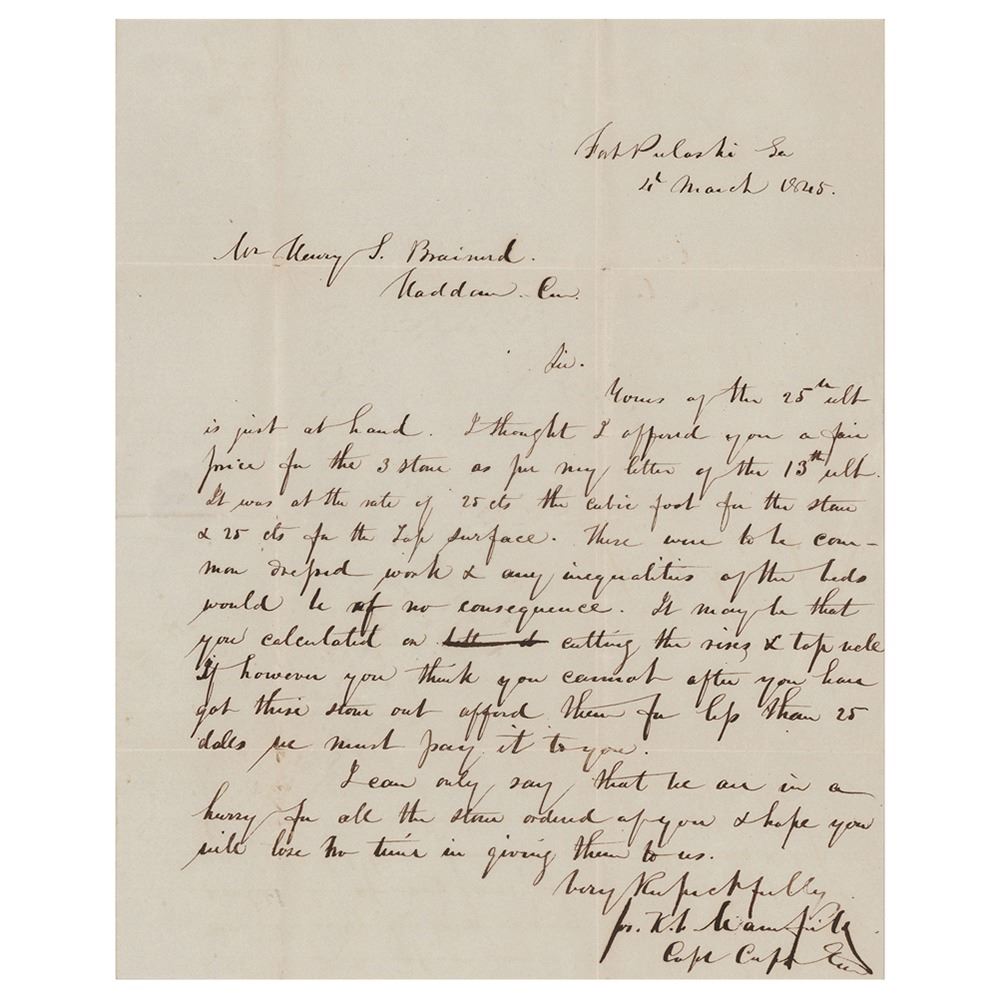 Fort Pulaski Ga
4t March 1845.
Mr Henry S. Brainerd.
Haddam. Con.
Sir.
Yours of the 25th ult
is just at hand. I thought I offered you a fair
price for the 3 stone as per my letter of the 13th ult.
It was at the rate of 25 cts the cubic foot for the stone
& 25 cts for the Top surface. These were to be com-
mon dressed work & any inequalities of the beds
would be of no consequence. It may be that
you calculated on cutting the rises & top well
If however you think you cannot after you have
got these stone out afford them for less than 25
dolls we must pay it to you.
I can only say that we are in a
hurry for all the stone ordered of you & hope you
will lose no time in giving them to us.
Very Respectfully
Jos. K. F. Mansfield
Capt Corps Eng